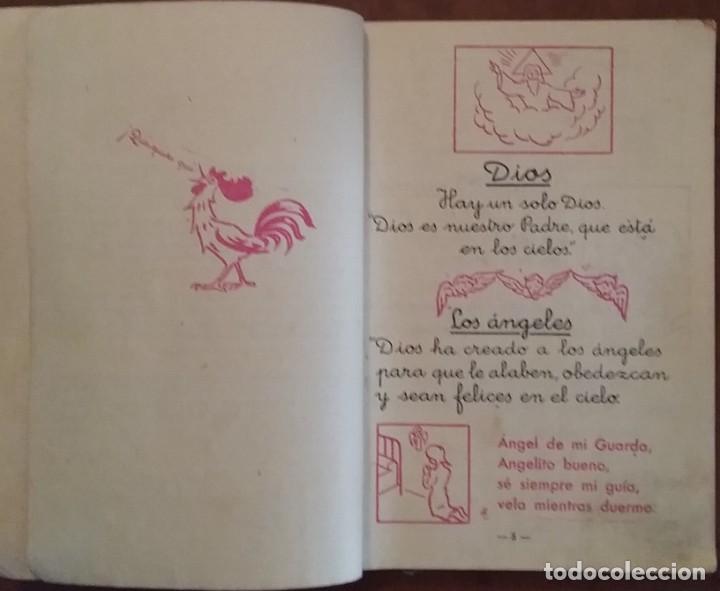 ¡Quiquiriquí!
Dios
Hay un solo Dios.
"Dios es nuestro Padre, que está
en los cielos."
Los ángeles
"Dios ha creado a los ángeles
para que le alaben, obedezcan
y sean felices en el cielo.
Ángel de mi Guarda,
Angelito bueno,
sé siempre mi guía,
vela mientras duermo.
— 8 —
todocoleccion.net